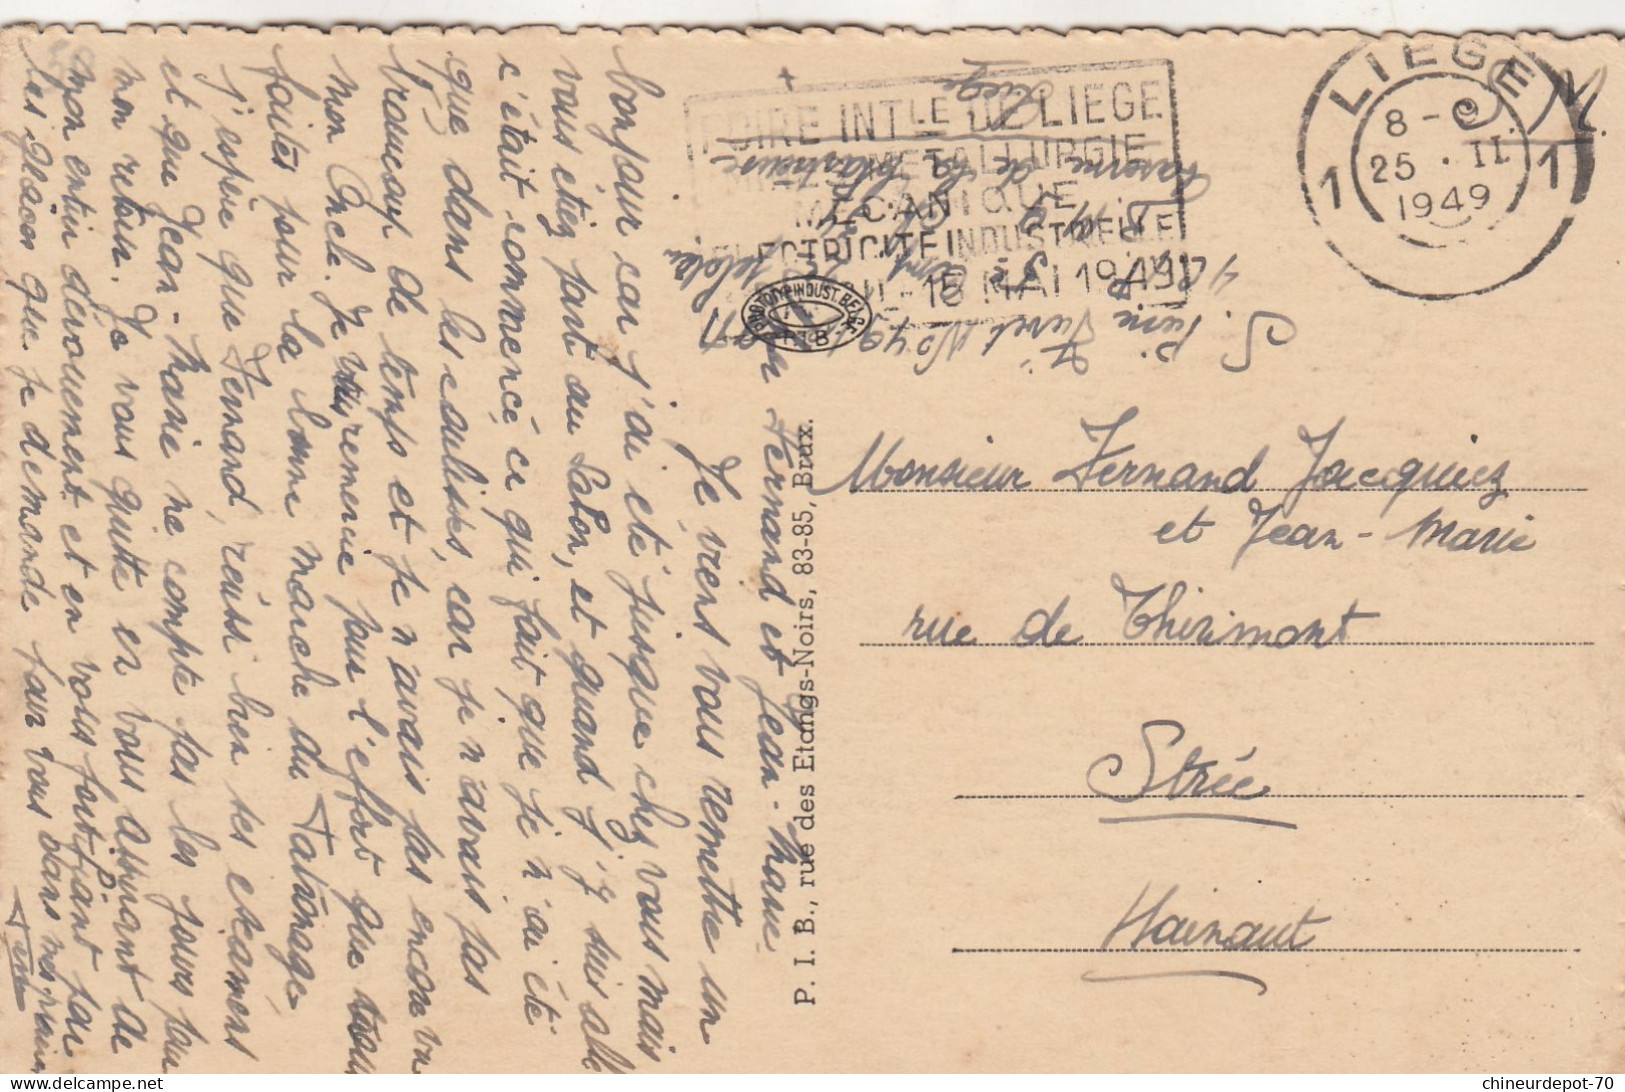 LIEGE
1 1
8-9
25 . II.
1949
FOIRE INTLE DE LIEGE
METALLURGIE
MECANIQUE
ELECTRICITE INDUSTRIELLE
- 15 MAI 1949
Liége
Caserne de la Chartreuse
S. Pierre Furet No 49
PHOTOTYPINDUST. BELGE
P.I.B.
P. I. B., rue des Etangs-Noirs, 83-85, Brux.
Fernand et Jean-Marie
Je viens vous remettre un
bonjour car j'ai été jusque chez vous mais
vous étiez parti au Salon, et quand j'y suis allé
c'était commencé, ce qui fait que je n'ai été
que dans les coulisses, car je n'avais pas
beaucoup de temps et je n'avais pas encore vu
mon Oncle. Je vous remercie pour l'effort que vous
faites pour la bonne marche du Patronage,
j'espère que Fernand réussi bien ses examens
et que Jean-Marie ne compte pas les jours pour
mon retour. Je vous quitte en vous assurant de
mon entier dévouement et en vous fortifiant par
les grâces que je demande pour vous dans mes prières
Monsieur Fernand Jacquiez
et Jean-Marie
rue de Thirimont
Strée
Hainaut
chineurdepot-70